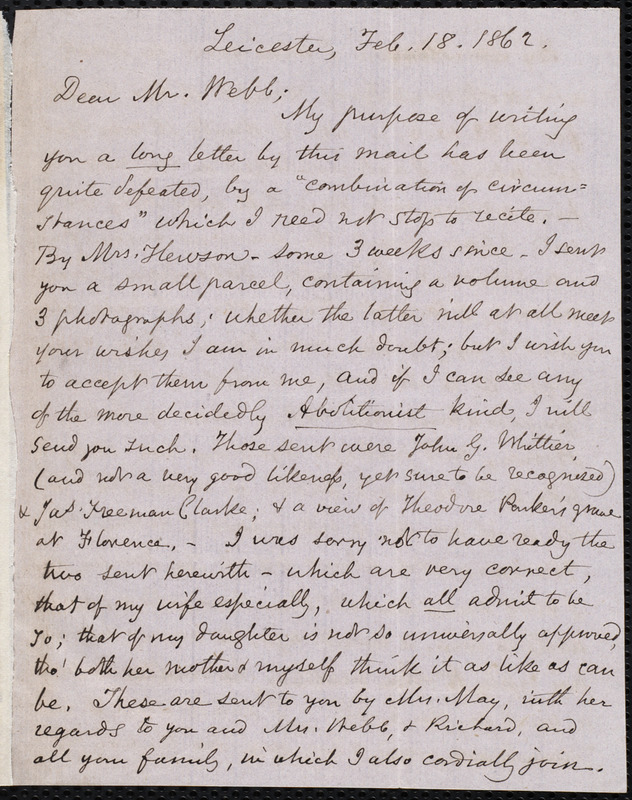 Leicester, Feb. 18. 1862.
Dear Mr. Webb;
My purpose of writing
you a long letter by this mail has been
quite defeated, by a "combination of circum=
stances" which I need not stop to recite. -
By Mrs. Hewson - some 3 weeks since - I sent
you a small parcel, containing a volume and
3 photographs; whether the latter will at all meet
your wishes I am in much doubt; but I wish you
to accept them from me, and if I can see any
of the more decidedly Abolitionist kind, I will
send you such. Those sent were John G. Whittier,
(and not a very good likeness, yet sure to be recognised)
& Jas. Freeman Clarke; & a view of Theodore Parker's grave
at Florence. - I was sorry not to have ready the
two sent herewith - which are very correct,
that of my wife especially, which all admit to be
so; that of my daughter is not so universally approved,
tho' both her mother & myself think it as like as can
be. These are sent to you by Mrs. May, with her
regards to you and Mrs. Webb, & Richard, and
all your family, in which I also cordially join.